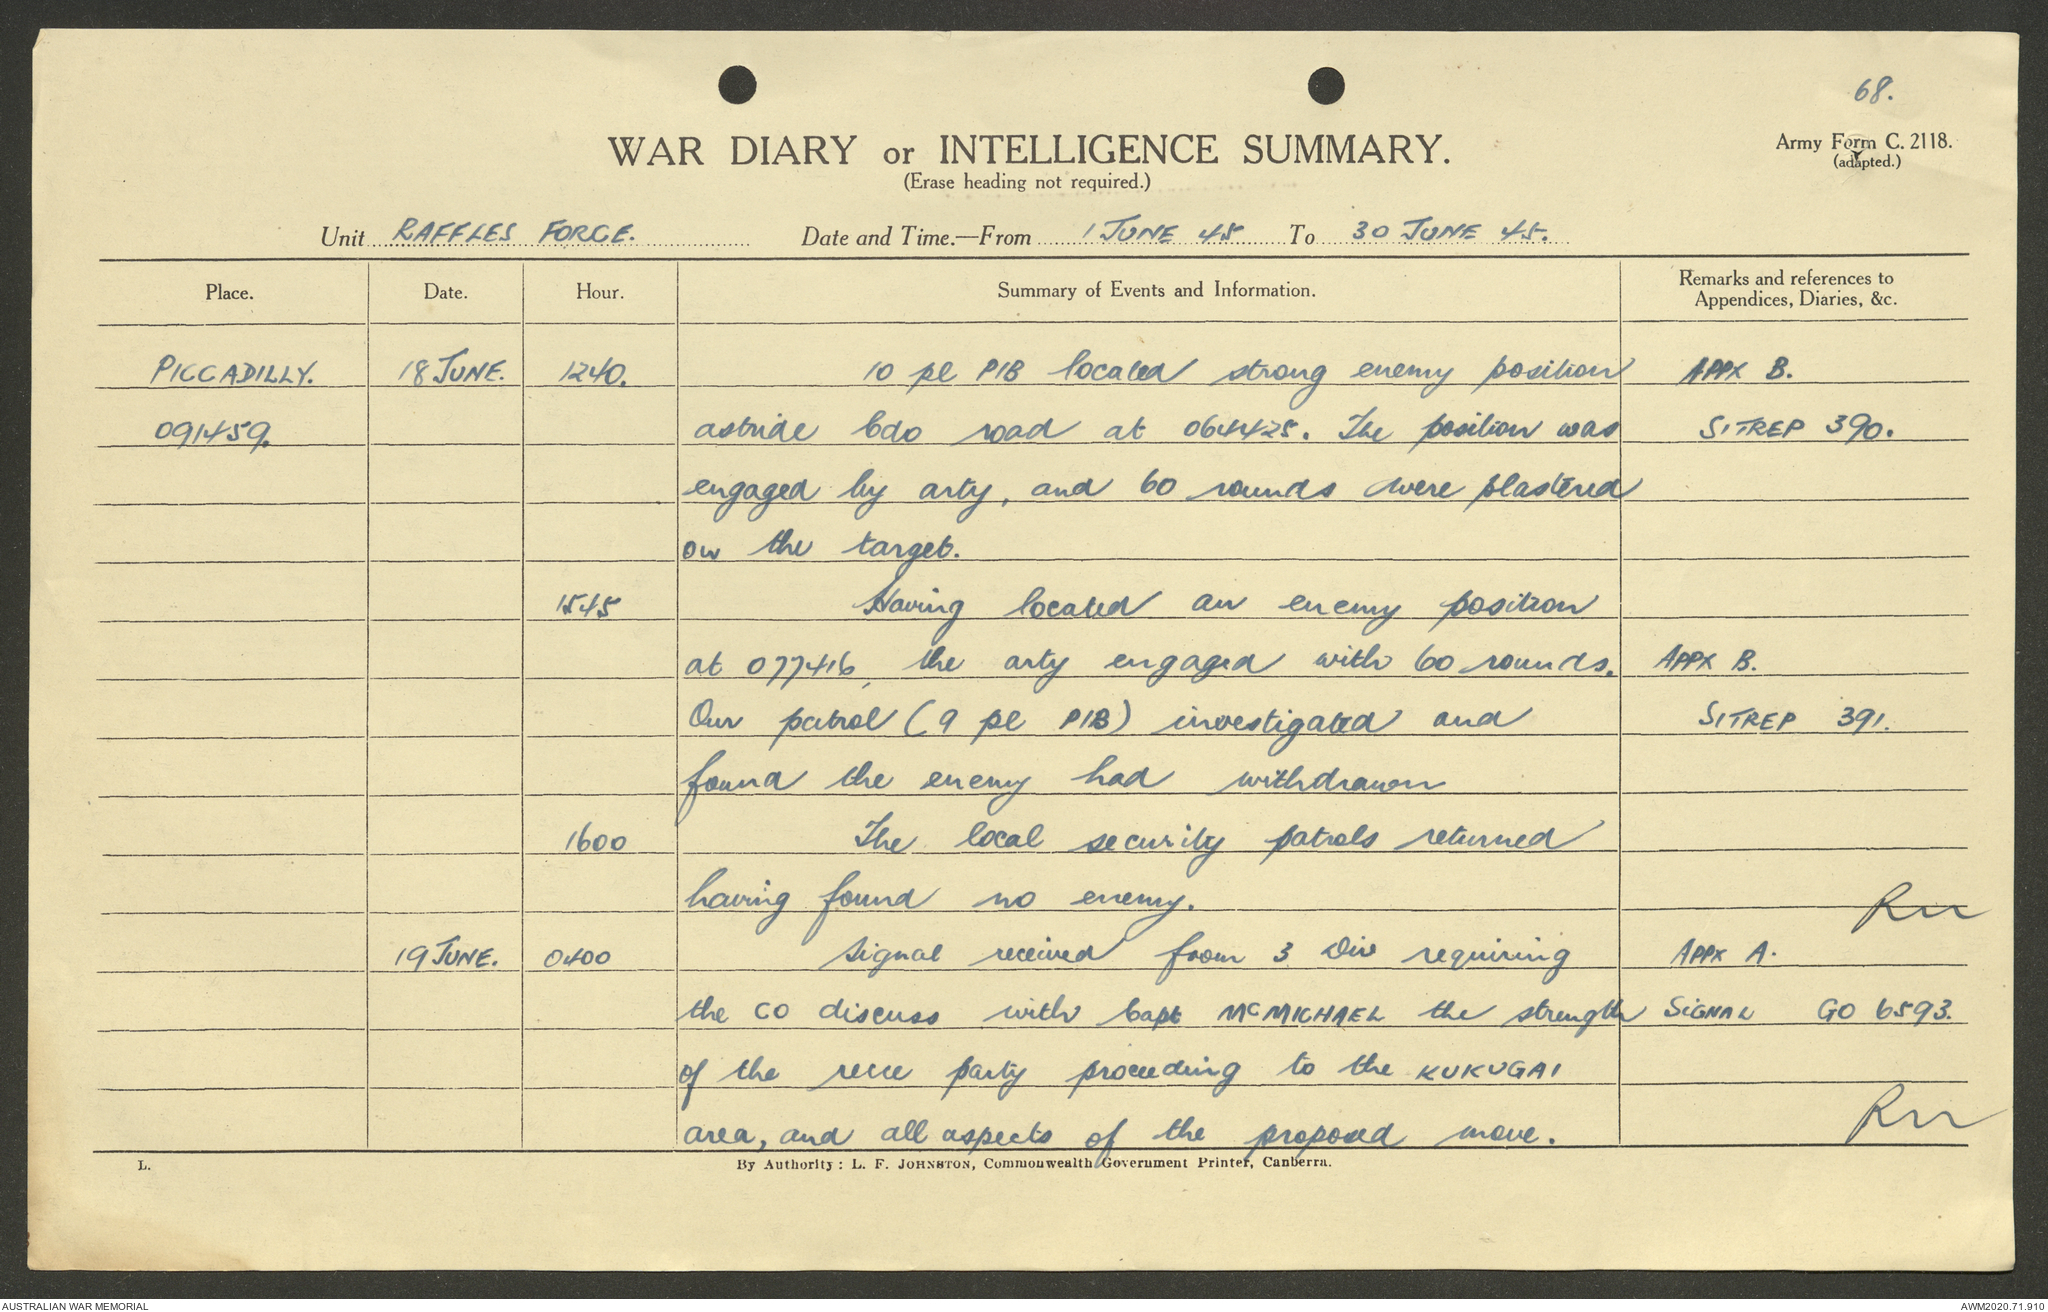 68.
WAR DIARY or INTELLIGENCE SUMMARY.
Army Form C. 2118.
(adapted.)
(Erase heading not required.)
Unit RAFFLES FORCE. Date and Time.—From 1 JUNE 45 To 30 JUNE 45.
Place. Date. Hour. Summary of Events and Information. Remarks and references to
Appendices, Diaries, &c.
PICCADILLY. 18 JUNE. 1240. 10 pl PIB located strong enemy position APPX B.
091459. astride Cdo road at 064425. The position was SITREP 390.
engaged by arty, and 60 rounds were plastered
on the target.
1545 Having located an enemy position
at 077416, the arty engaged with 60 rounds. APPX B.
Our patrol (9 pl PIB) investigated and SITREP 391.
found the enemy had withdrawn
1600 The local security patrols returned
having found no enemy.
19 JUNE. 0400 Signal received from 3 Div requiring APPX A.
the CO discuss with Capt McMICHAEL the strength SIGNAL GO 6593.
of the recce party proceeding to the KUKUGAI
area, and all aspects of the proposed move.
L. By Authority: L. F. JOHNSTON, Commonwealth Government Printer, Canberra.
AUSTRALIAN WAR MEMORIAL AWM2020.71.910